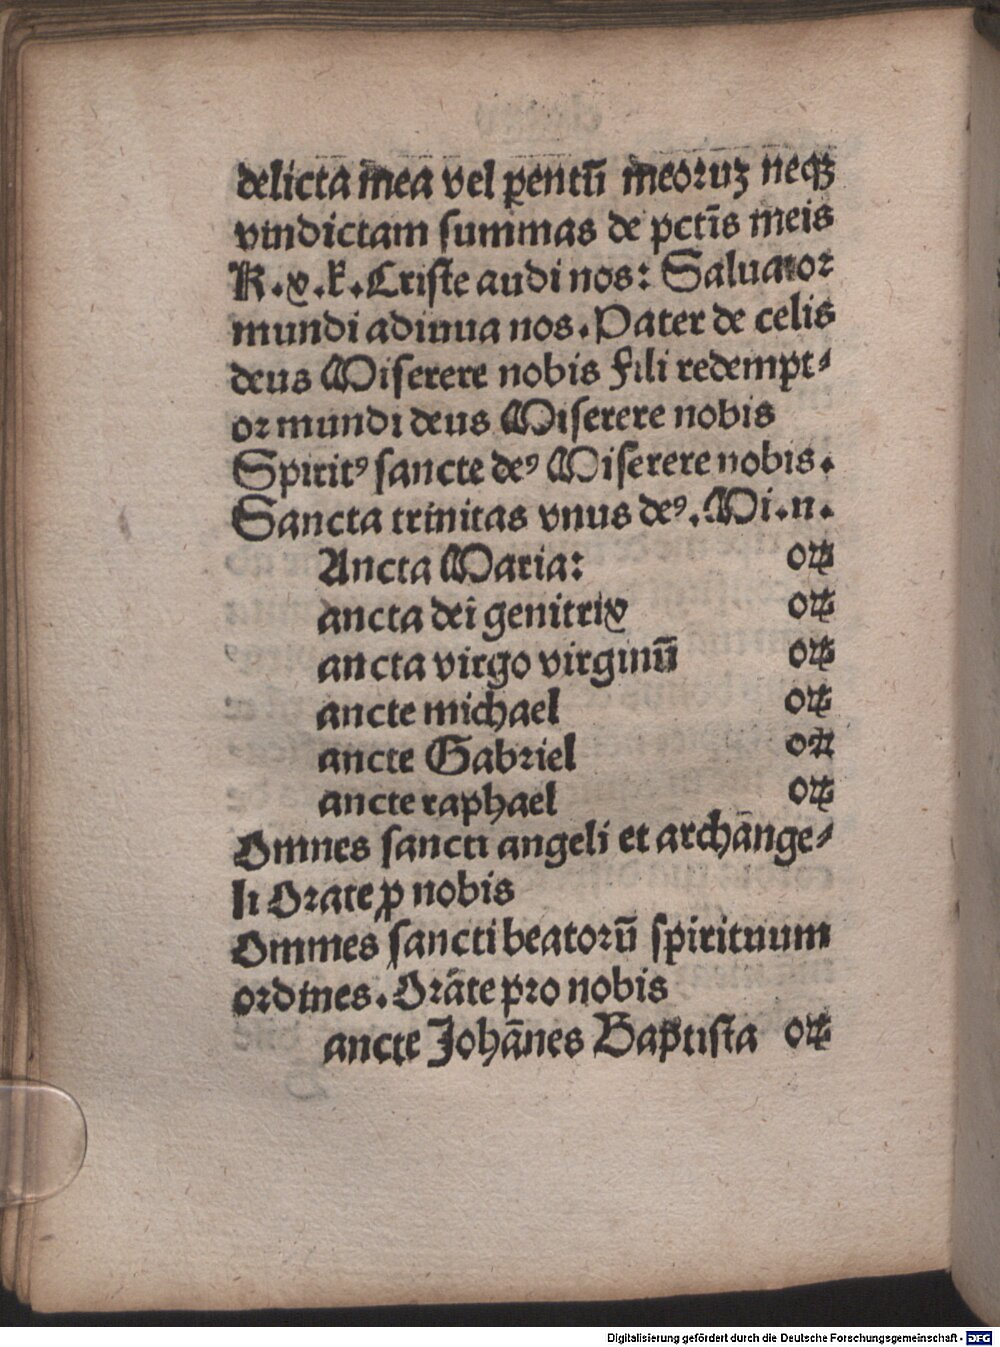 delicta mea vel ꝑentū meoruꝫ neqꝫ
vindictam summas de pctīs meis
K.x.k.Criste audi nos: Saluator
mundi adiuua nos.Pater de celis
deus Miserere nobis Fili redempt⸗
or mundi deus Miserere nobis
Spiritꝰ sancte deꝰ Miserere nobis.
Sancta trinitas vnus deꝰ.Mi.n.
Ancta Maria: or̄
ancta dei genitrix or̄
ancta virgo virginū or̄
ancte michael or̄
ancte Gabriel or̄
ancte raphael or̄
Omnes sancti angeli et archāge⸗
li Orate ꝓ nobis
Ommes sancti beatorū spirituum
ordines.Orāte pro nobis
ancte Johānes Baptista or̄
Digitalisierung gefördert durch die Deutsche Forschungsgemeinschaft - DFG